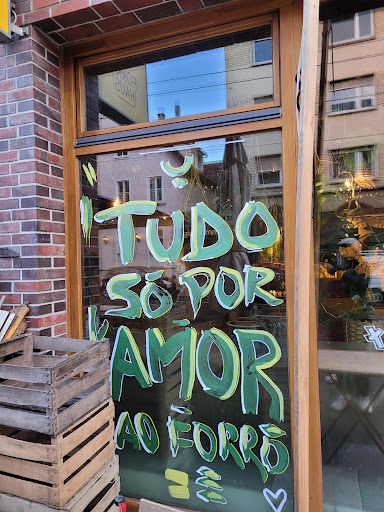 TUDO
SÓ POR
AMOR
AO FORRÓ